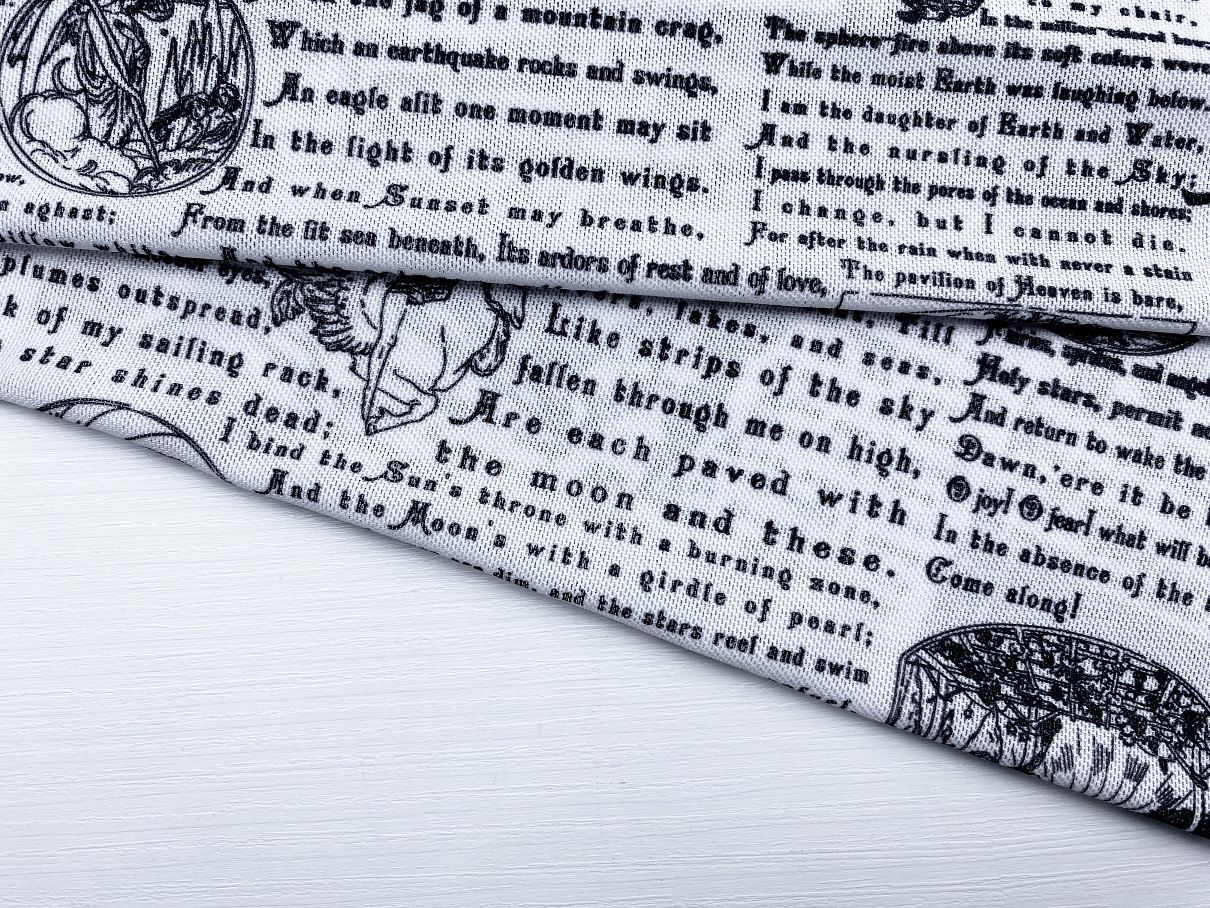 the jag of a mountain crag,
Which an earthquake rocks and swings,
An eagle alit one moment may sit
In the light of its golden wings.
And when Sunset may breathe,
From the lit sea beneath, Its ardors of rest and of love,
And the
aghast;
eyes,
plumes outspread,
k of my sailing rack,
star shines dead;
to my chair,
In the million-colored bow;
The sphere-fire above its soft colors wove
While the moist Earth was laughing below.
I am the daughter of Earth and Water,
And the nursling of the Sky;
I pass through the pores of the ocean and shores;
I change, but I cannot die.
For after the rain when with never a stain
The pavilion of Heaven is bare,
lakes, and seas,
Like strips of the sky
fallen through me on high,
Are each paved with
the moon and these.
I bind the Sun's throne with a burning zone,
And the Moon's with a girdle of pearl;
dim, and the stars reel and swim
Till
Holy stars, permit
And return to wake the
Dawn, 'ere it be
O joy! O fear! what will be
In the absence of the
Come along!